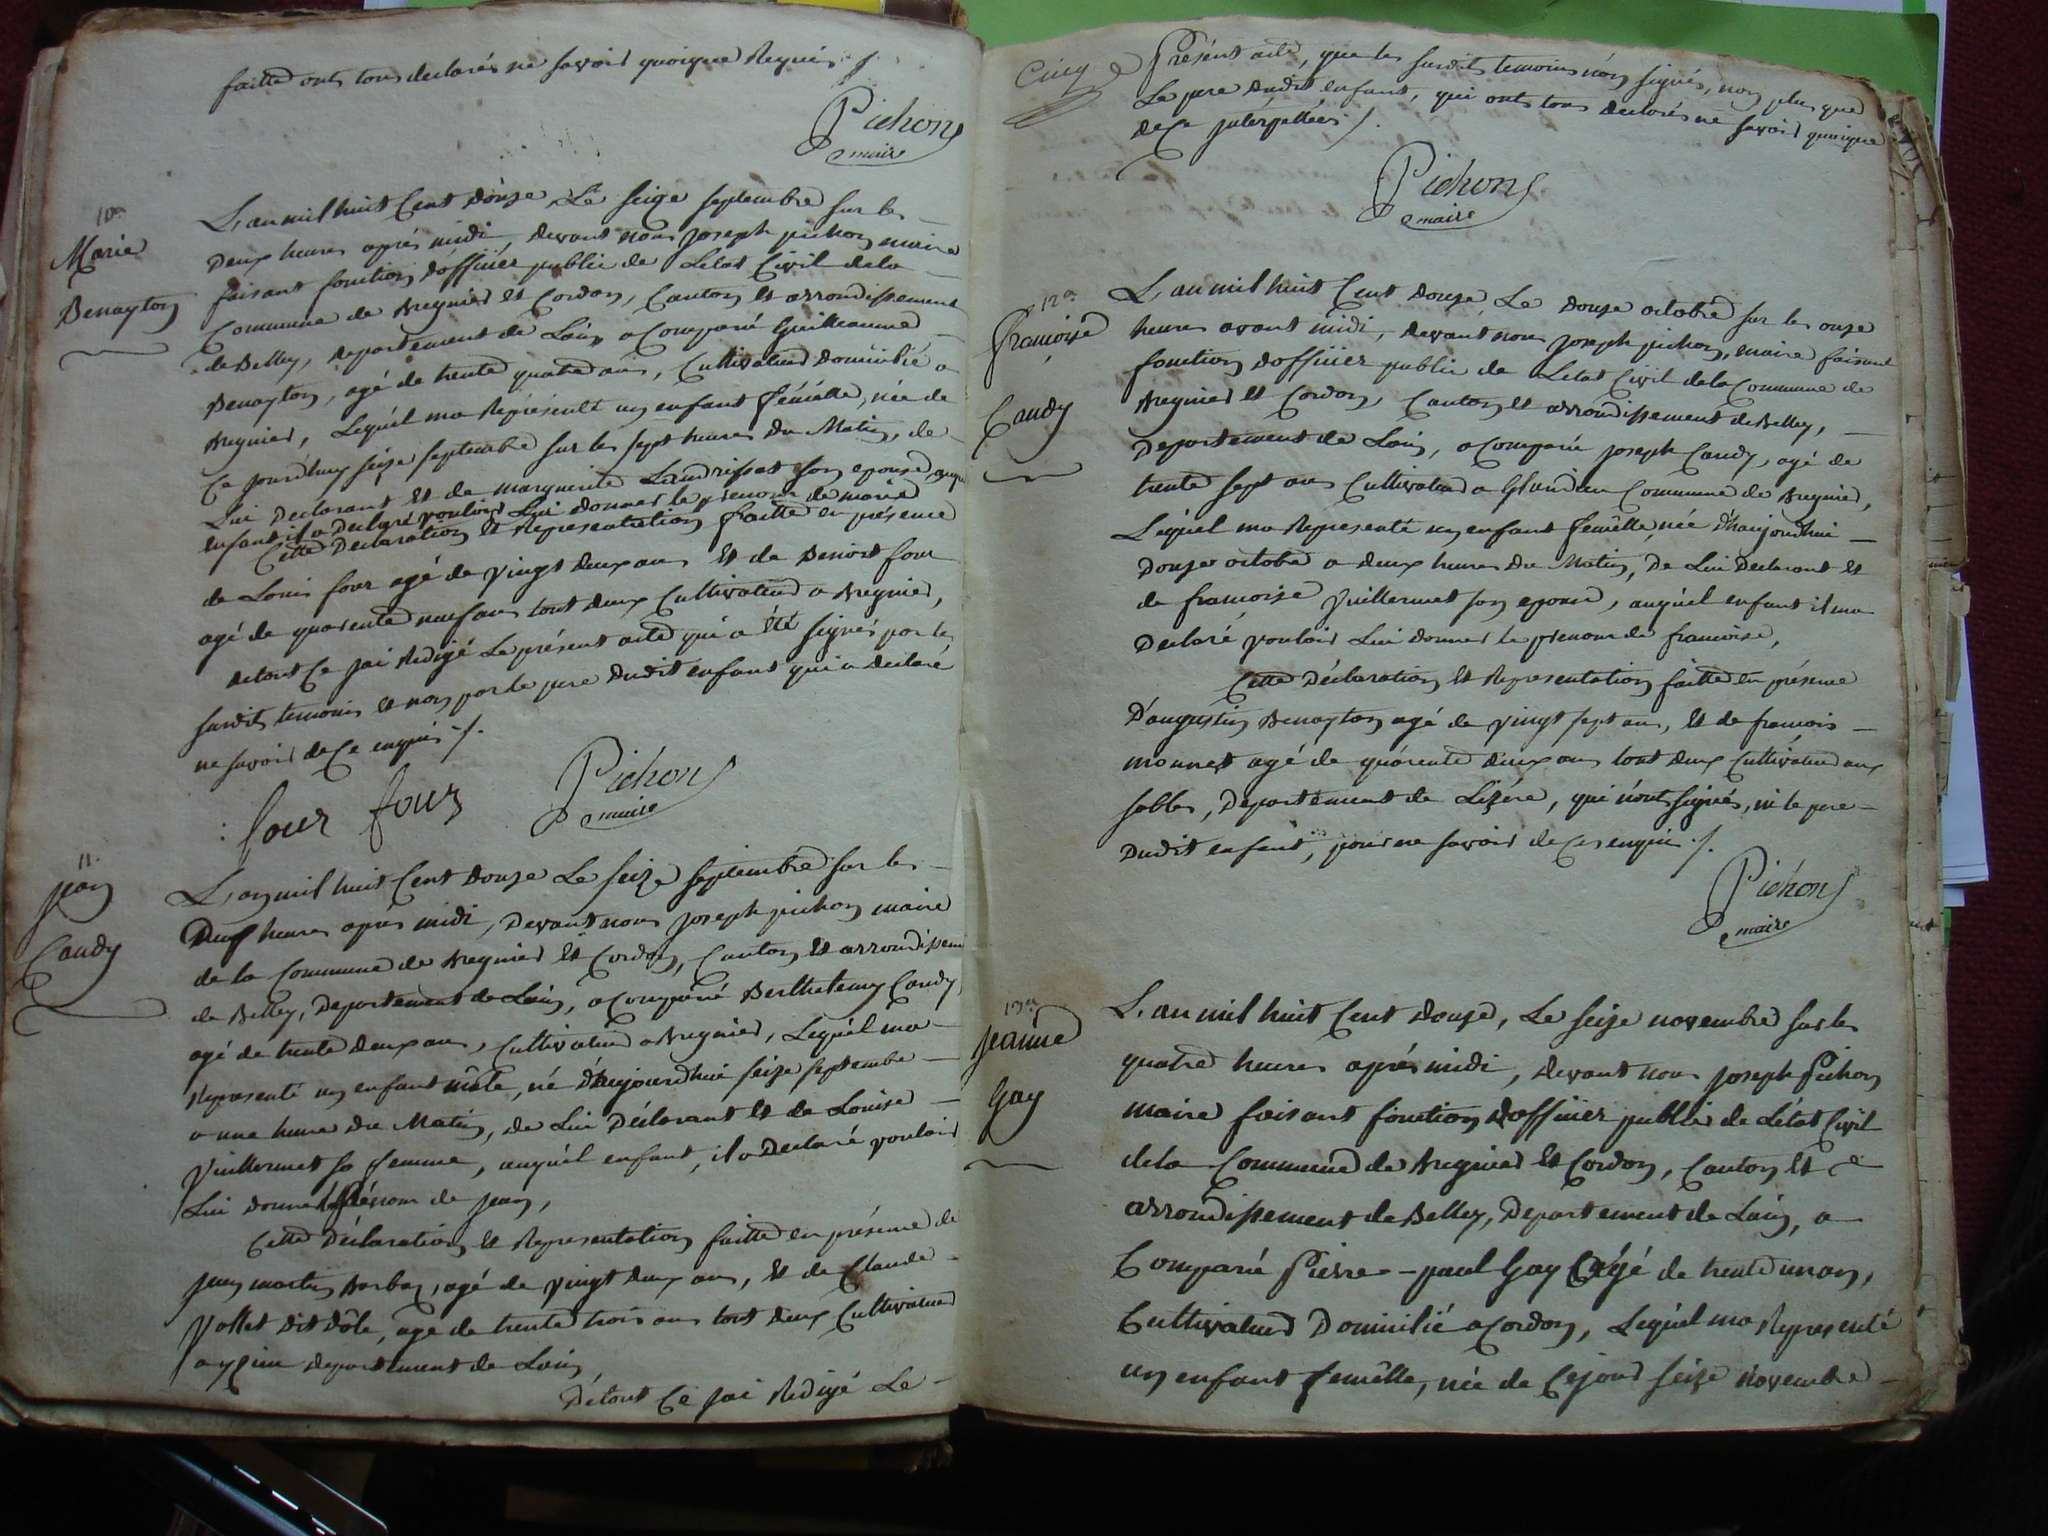 faitte onts tous declarés ne savoir quoique Requis ./.
Pichon
maire
10e
Marie
Benayton
L'an mil huit Cent douze, Le seize septembre sur les
deux heures après midi, devant nous joseph pichon maire
faisant fonction d'officier public de L'état Civil dela
Commune de Bregnier et Cordon, Canton et arrondissement
de Belley, departement de L'ain a Comparé Guilleaume
Benayton, agé de trente quatre ans, Cultivateur domicilié a
Bregnier, Lequel ma Représenté un enfant femelle, née de
Ce jourd'huy seize septembre sur les sept heures du Matin, de
Lui Declarant et de marguerite Landrissat son epouse, auquel
enfant il a Declaré vouloir Lui donner le prenom de marie
Cette Declaration et Representation faitte en présence
de Louis four agé de vingt deux ans et de Benoist four
agé de quarente neuf ans tout deux Cultivateur a Bregnier,
detout Ce jai Redigé Le présent acte qui a été signés par les
susdits temoins et non par le pere dudit enfant qui a declaré
ne savoir de Ce enquis ./.
four four Pichon
maire
11.
jean
Candy
L'an mil huit Cent douze Le seize septembre sur les
Deux heures après midi, Devant nous joseph pichon maire
de la Commune de Bregnier et Cordon, Canton et arrondissem
de Belley, Departement de L'ain, a Comparé Berthelemy Candy,
agé de trente deux ans, Cultivateur a Bregnier, Lequel ma
Representé un enfant mâle, né d'aujourdhui seize septembre
a une heure du Matin, de Lui Déclarant et de Louise
Vuillermet sa femme, auquel enfant, il a Declaré vouloir
Lui donner le prénom de jean,
Cette Déclaration et Representation faitte en présence de
jean martin Barbaz, agé de vingt deux ans, et de Claude
Vollet dit Dôle, agé de trente trois ans tout deux Cultivateur
departement de L'ain
Détout Ce jai Redigé Le
Cinq
Présent acte, que les susdits temoins n'on signés, non plus que
Le pere dudit enfant, qui onts tous declarés ne savoir quoique
de Ce jnterpellées ./.
Pichon
maire
12e
françoise
Candy
L'an mil huit Cent douze Le douze octobre sur les onze
heures avant midi, devant nous joseph pichon, maire faisant
fonction d'officier public de L'état Civil dela Commune de
Bregnier et Cordon, Canton et arrondissement de Belley,
Departement de L'ain, a Comparé joseph Candy, agé de
trente sept ans Cultivateur a Glandieu Commune de Bregnier,
Lequel ma Representé un enfant femêlle, née d'haujourdhui
Douze octobre a deux heures du Matin, De Lui Declarant et
de francoise Vuillermet son epouse, auquel enfant il ma
Declaré vouloir Lui donner le prenom de francoise,
Cette Déclaration et Representation faitte en présence
D'augustin Benayton agé de vingt sept ans, et de francois
monnet agé de quarente deux ans tout deux Cultivateur aux
sables, Departement de Lizére, qui n'ont signés, ni le pere
Dudit enfant, pour ne savoir de Ces enquis ./.
Pichon
maire
13e
jeanne
Gay
L'an mil huit Cent douze, Le seize novembre sur les
quatre heures après midi, devant nous joseph Pichon
maire faisant fonction d'officier public de L'état Civil
dela Commune de Bregnier et Cordon, Canton et
arrondissement de Belley, Departement de L'ain, a
Comparé Pierre-paul Gay agé de trente un an,
Cultivateur Domicilié a Cordon, Lequel ma Representé
un enfant femêlle, née de Cejour seize novembre